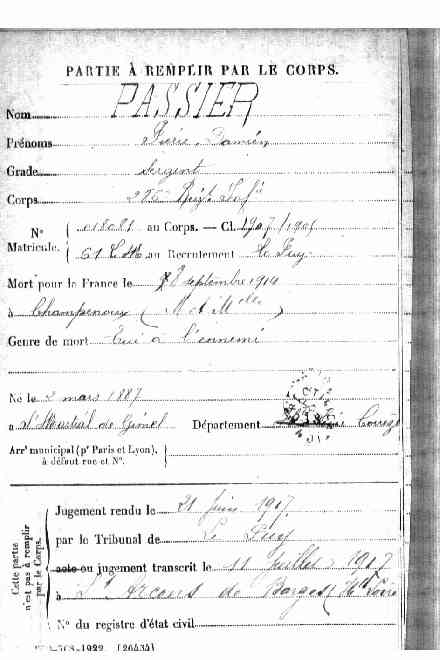 PARTIE À REMPLIR PAR LE CORPS.
Nom PASSIER
Prénoms Pierre, Damien
Grade Sergent
Corps Régt Infie
N° Matricule. 018081 au Corps. — Cl. 1907/1905
au Recrutement Le Puy
Mort pour la France le 8 septembre 1914
à Champenoux (M et Mlle)
Genre de mort Tué à l'ennemi
Né le 2 mars 1887
à St Martial de Gimel Département Corrèze
Arrt municipal (pr Paris et Lyon), à défaut rue et N°.
Cette partie n'est pas à remplir par le Corps.
Jugement rendu le 21 juin 1917
par le Tribunal de Le Puy
acte ou jugement transcrit le 11 juillet 1917
à St Arcons de Barges (Hte Loire
N° du registre d'état civil
1922. [26434]